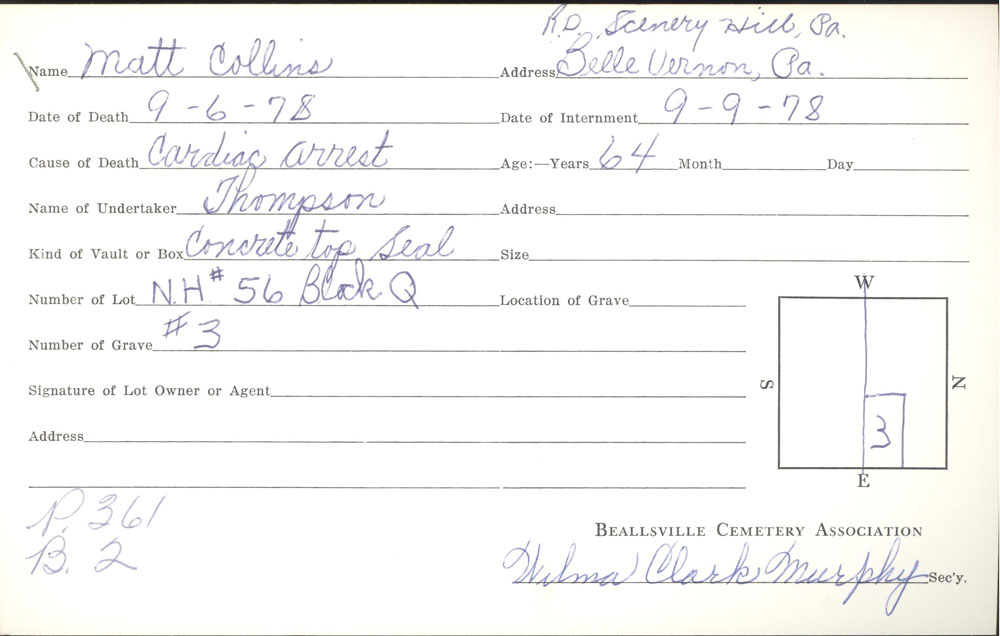 R.D. Scenery Hill, Pa.
Name Matt Collins Address Belle Vernon, Pa.
Date of Death 9-6-78 Date of Internment 9-9-78
Cause of Death Cardiac arrest Age:—Years 64 Month Day
Name of Undertaker Thompson Address
Kind of Vault or Box Concrete top Seal Size
Number of Lot N.H # 56 Block Q Location of Grave
Number of Grave #3
Signature of Lot Owner or Agent
Address
W
S
N
3
E
P. 361
B. 2
BEALLSVILLE CEMETERY ASSOCIATION
Wilma Clark Murphy Sec'y.